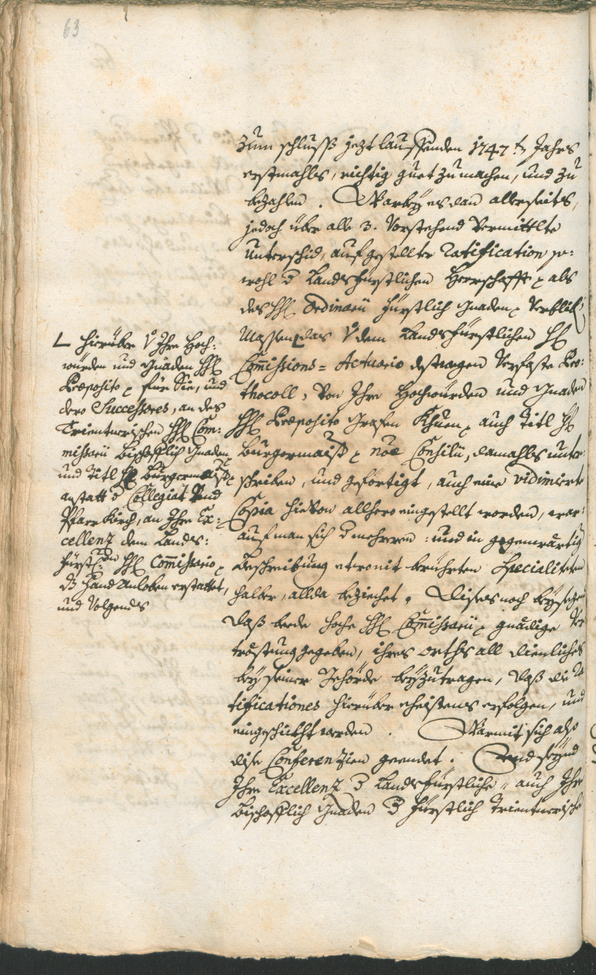 63
zum schluss jezt lauffenden 1747ten Jahrs
erstmahls, richtig guet zu machen, und zu
bezahlen. Warbey es dan allerseits,
jedoch über alle 3. vorstehend vermittlte
Unterschid, auf gestellte Ratification so-
wohl d Landsfürstlichen Herrschafft, als
des HH. Ordinarii Fürstlich Gnaden, verblib
Massen das dem Landsfürstlichen H
Commissions-Actuario destwegen verfaste Pro-
thocoll, von Ihro Hochwürden und Gnaden
HH. Præposito Grafen Khuen, auch Titl H
Burgermaister noe Consilii, damahls unter
schriben, und gefertigt, auch eine vidimierte
Copia hievon allhero eingestellt worden, war-
auf man sich d mehreren: und in gegenwärtig
Beschreibung berührten Specialiteten
halber, allda beziehet. Dises noch
daß beede hoche HH. Commissarii gnädige Ver
tröstung gegeben, ihres orths all dienliches
bey seiner Behörde beyzutragen, daß die Ra
tificationes hierüber ehistens erfolgen, und
eingeschickt werden. Warmit sich also
dise Conferenzien geendet. Und seynd
Ihro Excellenz d Landsfürstliche, auch Ihro
Bischofflich Gnaden d Fürstlich Trientnerische
L hierüber Ihro Hoch-
würden und Gnaden HH
Præposito, für Sie, und
dero Successores, an des
Trientnerischen HH. Com-
missarii Bischofflich Gnaden
und Titl H. Burgermaister
anstatt d Collegiat und
Pfarr Kirch, an Ihro Ex-
cellenz dem Landts-
Fürstlen HH. Commissario,
d Hand Anloben erstattet,
und volgends